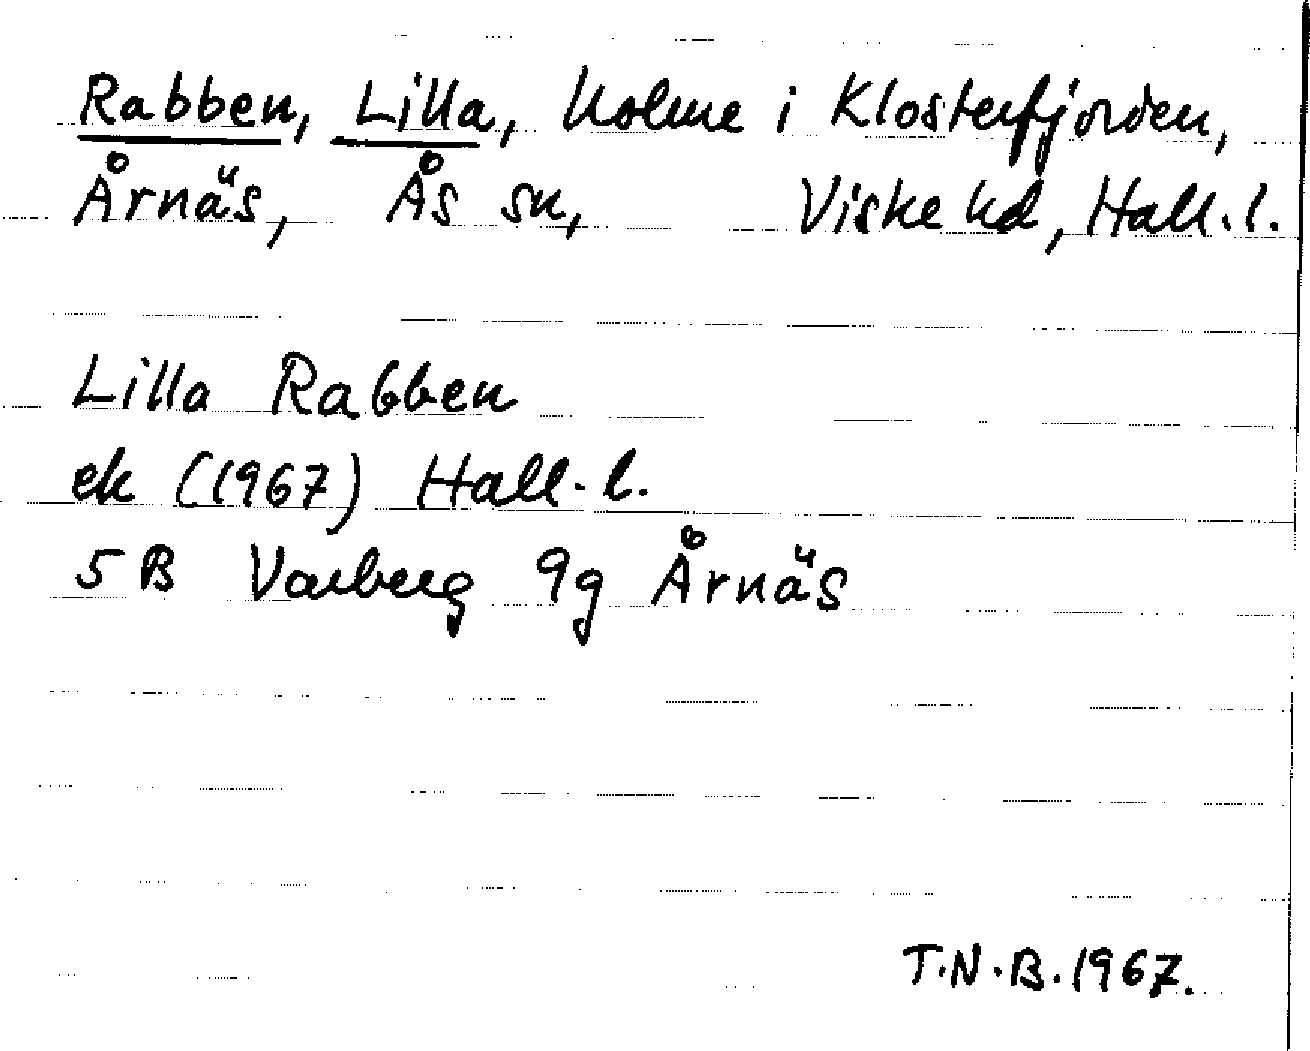 Rabben, Lilla, holme i Klosterfjorden,
Årnäs, Ås sn, Viske hd, Hall. l.
Lilla Rabben
ek (1967) Hall. l.
5 B Varberg 9g Årnäs
T.N.B. 1967.